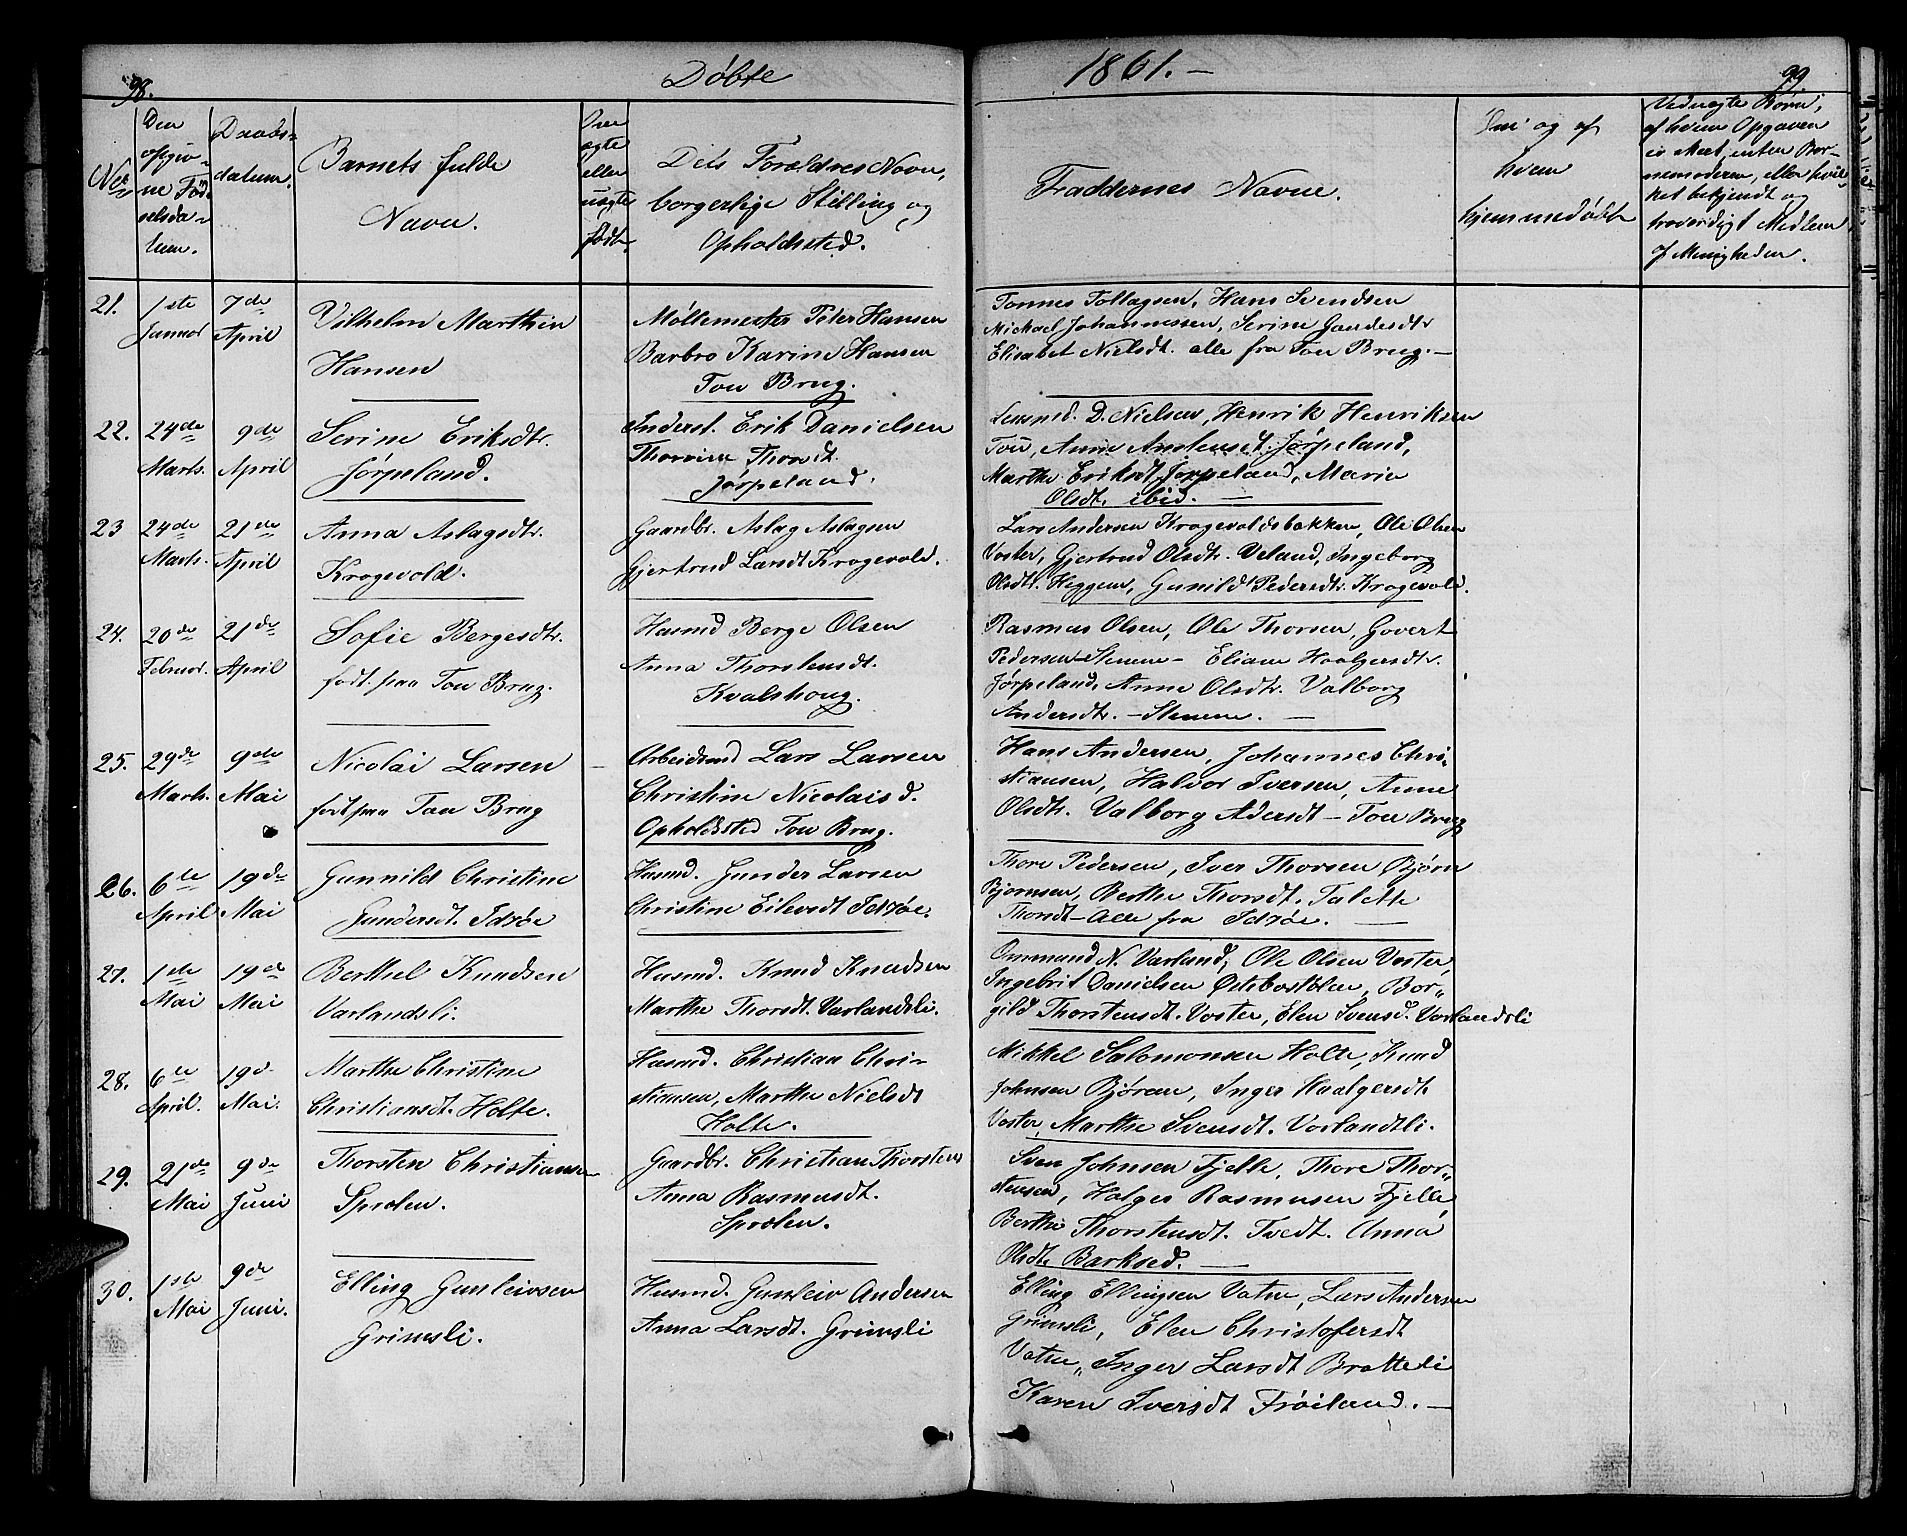 98.
Døbte
1861.
99
Nrs
Den opgivne Fødselsdatum.
Daabsdatum.
Barnets fulde Navn.
eller uægte født.
Dets Forældres Navn, borgerlige Stilling og Opholdssted.
Faddernes Navne.
og af hvem hjemmedøbt
Veduægte Børn, af hvem Opgaven er skeet, enten Barnemoderen, eller hvilket bekjendt og troværdigt Medlem af Menigheden.
21.
1ste Januar
7de April
Vilhelm Marthin
Hansen
Møllemester Peter Hansen
Barbro Karine Hansen
Tou Brug.
Tonnes Tollagsen, Hans Svendsen
Michael Johannessen, Serine Gaudesdtr
Elisabet Nielsdt. alle fra Tou Brug.—
22.
24de Marts.
9de April
Serine Eriksdtr.
Jørpeland.
Inderst. Erik Danielsen
Thorsdt.
Jørpeland.
Lensmd. D. Nielsen, Henrik Henriksen
Tou, Anne Jørpeland,
Marthe Eriksdt Jørpeland, Marie
Olsdt. ibid. —
23
24de Marts.
21de April
Anna Aslagsdtr.
Kragevold.
Gaardbr. Aslag Aslagsen
Gjertrud Larsdt Kragevold.
Lars Andersen Kragevoldsbakken, Ole Olsen
Voster, Gjertrud Olsdtr. Veland, Ingeborg
Olsdtr. Heggem, Gunild Pedersdtr. Kragevold.
24.
20de Februar.
21de April
Sofie Bergesdtr.
født paa Tou Brug.
Husmd Berge Olsen
Anna Thorstensdt.
Kvalshoug.
Rasmus Olsen, Ole Thorsen, Govert
Pedersen Steene — Eliane Haalgersdtr.
Jørpeland, Anne Olsdtr. Valborg
Andersdtr. — Steene. —
25.
29de Marts.
9de Mai
Nicolai Larsen —
født paa Tou Brug
Arbeidsmd Lars Larsen
Christine Nicolaisd.
Opholdssted Tou Brug.
Hans Andersen, Johannes Chri-
stiansen, Halvor Iversen, Anne
Olsdtr. Valborg Adersdt — Tou Brug
26.
6te April
19de Mai
Gunnild Christine
Gundersdt. Idsøe
Husmd. Gunder Larsen
Christine Eilevsdt Idsøe.
Thore Pedersen, Iver Thorsen Bjørn
Bjørnsen, Berthe Thorsdt. Talette
Thorsdt — Alle fra Idsøe. —
27.
1ste Mai
19de Mai
Berthel Knudsen
Varlandsli.
Husmd. Knud Knudsen
Marthe Thorsdt. Varlandsli.
Ommund N. Varland, Ole Olsen Voster,
Ingebrit Danielsen Østebøstølen, Bor-
gild Thorstensdt. Voster, Elen Svensd. Varlandsli
28.
6te April.
19d Mai.
Marthe Christine
Christiansdt. Holte.
Husmd. Christian Chri-
stiansen, Marthe Nielsdt
Holte.
Mikkel Salomonsen Holte, Knud
Johnsen Bjøren, Inger Haalgersdt.
Voster, Marthe Svensdt. Varlandtli.
29.
21de Mai
9de Juni
Thorsten Christiansen
Sprølen.
Gaardbr. Christian Thorstens
Anna Rasmusdt.
Sprølen.
Sven Johnsen Fjelle, Thore Thor-
stensen, Holger Rasmusen Fjelle,
Berthe Thorstensdt. Tvedt. Anna
Olsdt. Barksed. —
30.
1ste Mai
9de Juni.
Elling Gunleivsen
Grimsli.
Husmd. Gunleiv Andersen
Anna Larsdt. Grimsli
Elling Ellingsen Vatne, Lars Andersen
Grimsli, Elen Christofersdt
Vatne, Inger Larsdt Bratteli
Karen Iversdt Frøiland. —